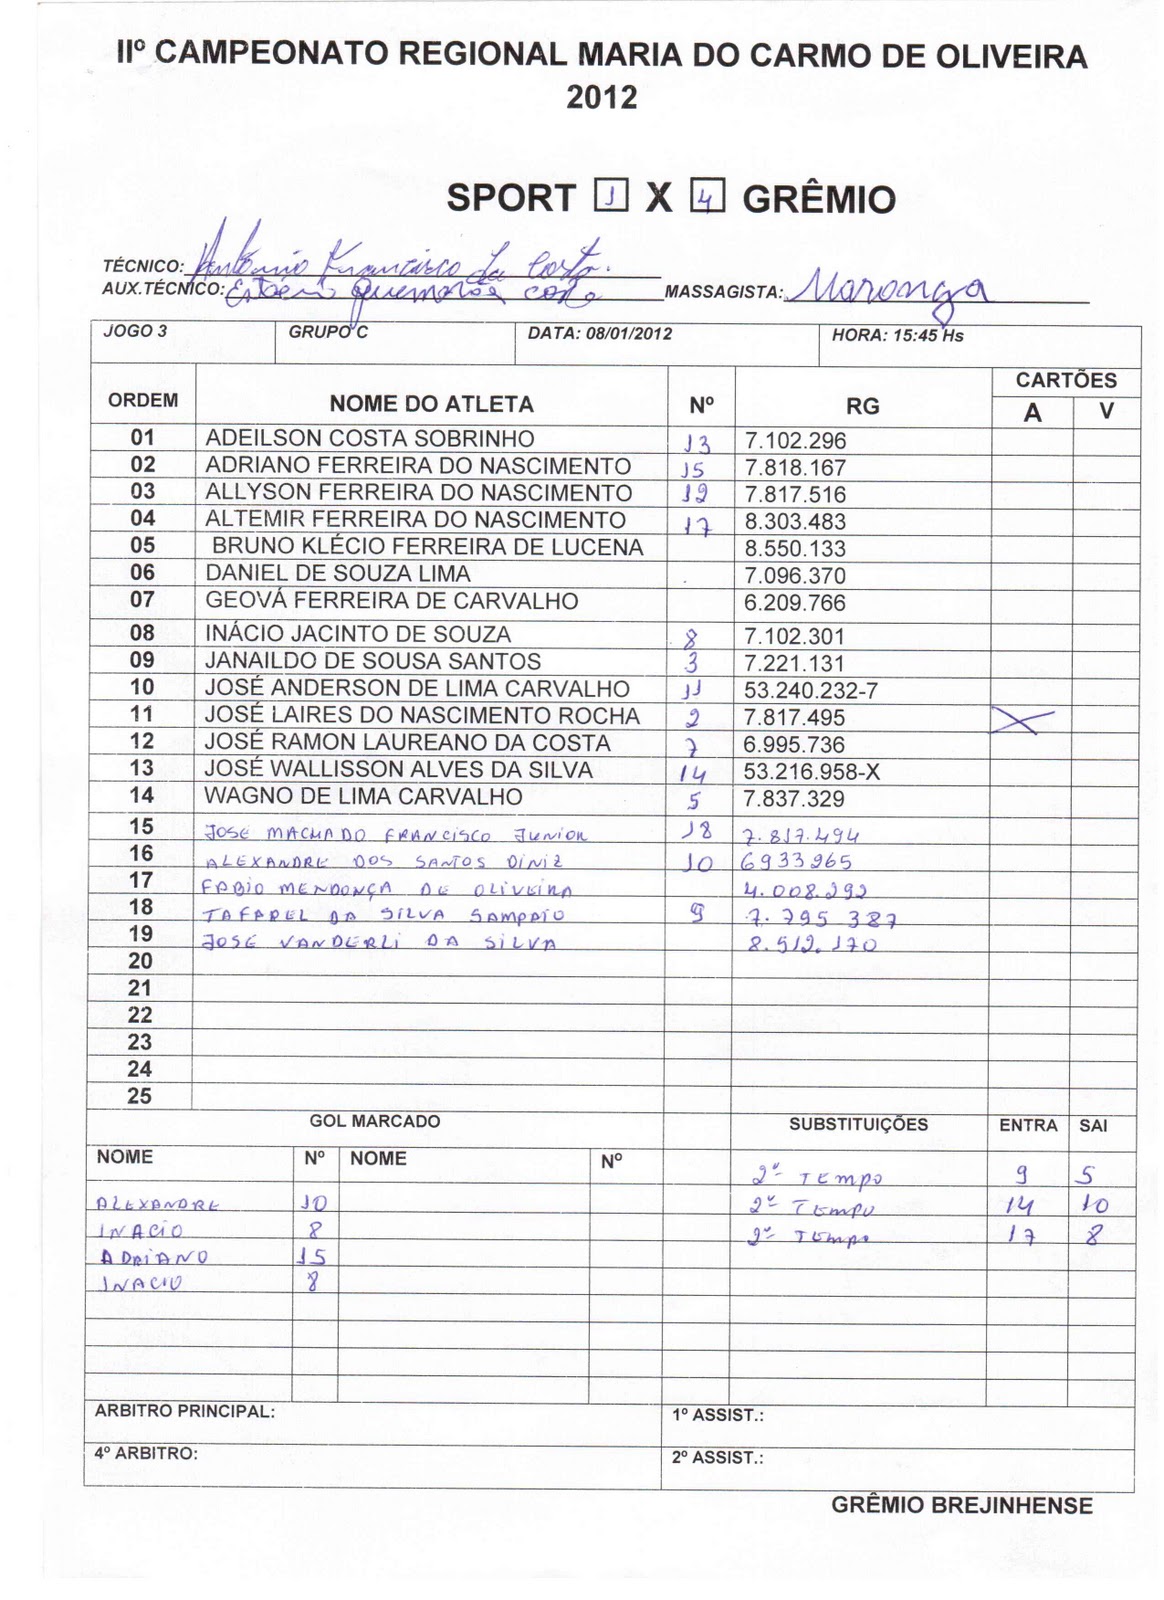 IIº CAMPEONATO REGIONAL MARIA DO CARMO DE OLIVEIRA
2012
SPORT 1 X 4 GRÊMIO
TÉCNICO: Antônio Francisco da Costa.
AUX.TÉCNICO: MASSAGISTA: Maronga
JOGO 3 GRUPO C DATA: 08/01/2012 HORA: 15:45 Hs
ORDEM NOME DO ATLETA Nº RG CARTÕES
A V
01 ADEILSON COSTA SOBRINHO 13 7.102.296
02 ADRIANO FERREIRA DO NASCIMENTO 15 7.818.167
03 ALLYSON FERREIRA DO NASCIMENTO 12 7.817.516
04 ALTEMIR FERREIRA DO NASCIMENTO 17 8.303.483
05 BRUNO KLÉCIO FERREIRA DE LUCENA 8.550.133
06 DANIEL DE SOUZA LIMA 7.096.370
07 GEOVÁ FERREIRA DE CARVALHO 6.209.766
08 INÁCIO JACINTO DE SOUZA 8 7.102.301
09 JANAILDO DE SOUSA SANTOS 3 7.221.131
10 JOSÉ ANDERSON DE LIMA CARVALHO 11 53.240.232-7
11 JOSÉ LAIRES DO NASCIMENTO ROCHA 2 7.817.495 X
12 JOSÉ RAMON LAUREANO DA COSTA 7 6.995.736
13 JOSÉ WALLISSON ALVES DA SILVA 14 53.216.958-X
14 WAGNO DE LIMA CARVALHO 5 7.837.329
15 JOSE MACHADO FRANCISCO JUNIOR 18 7.817.494
16 ALEXANDRE DOS SANTOS DINIZ 10 6933265
17 FABIO MENDONÇA DE OLIVEIRA 4.008.292
18 TAFAREL DA SILVA SAMPAIO 9 7.795 387
19 JOSE VANDERLI DA SILVA 8.512.170
20
21
22
23
24
25
GOL MARCADO SUBSTITUIÇÕES ENTRA SAI
NOME Nº NOME Nº
2º TEMPO 9 5
ALEXANDRE 10 2º TEMPO 14 10
INACIO 8 2º TEMPO 17 8
ADRIANO 15
INACIO 8
ARBITRO PRINCIPAL: 1º ASSIST.:
4º ARBITRO: 2º ASSIST.:
GRÊMIO BREJINHENSE